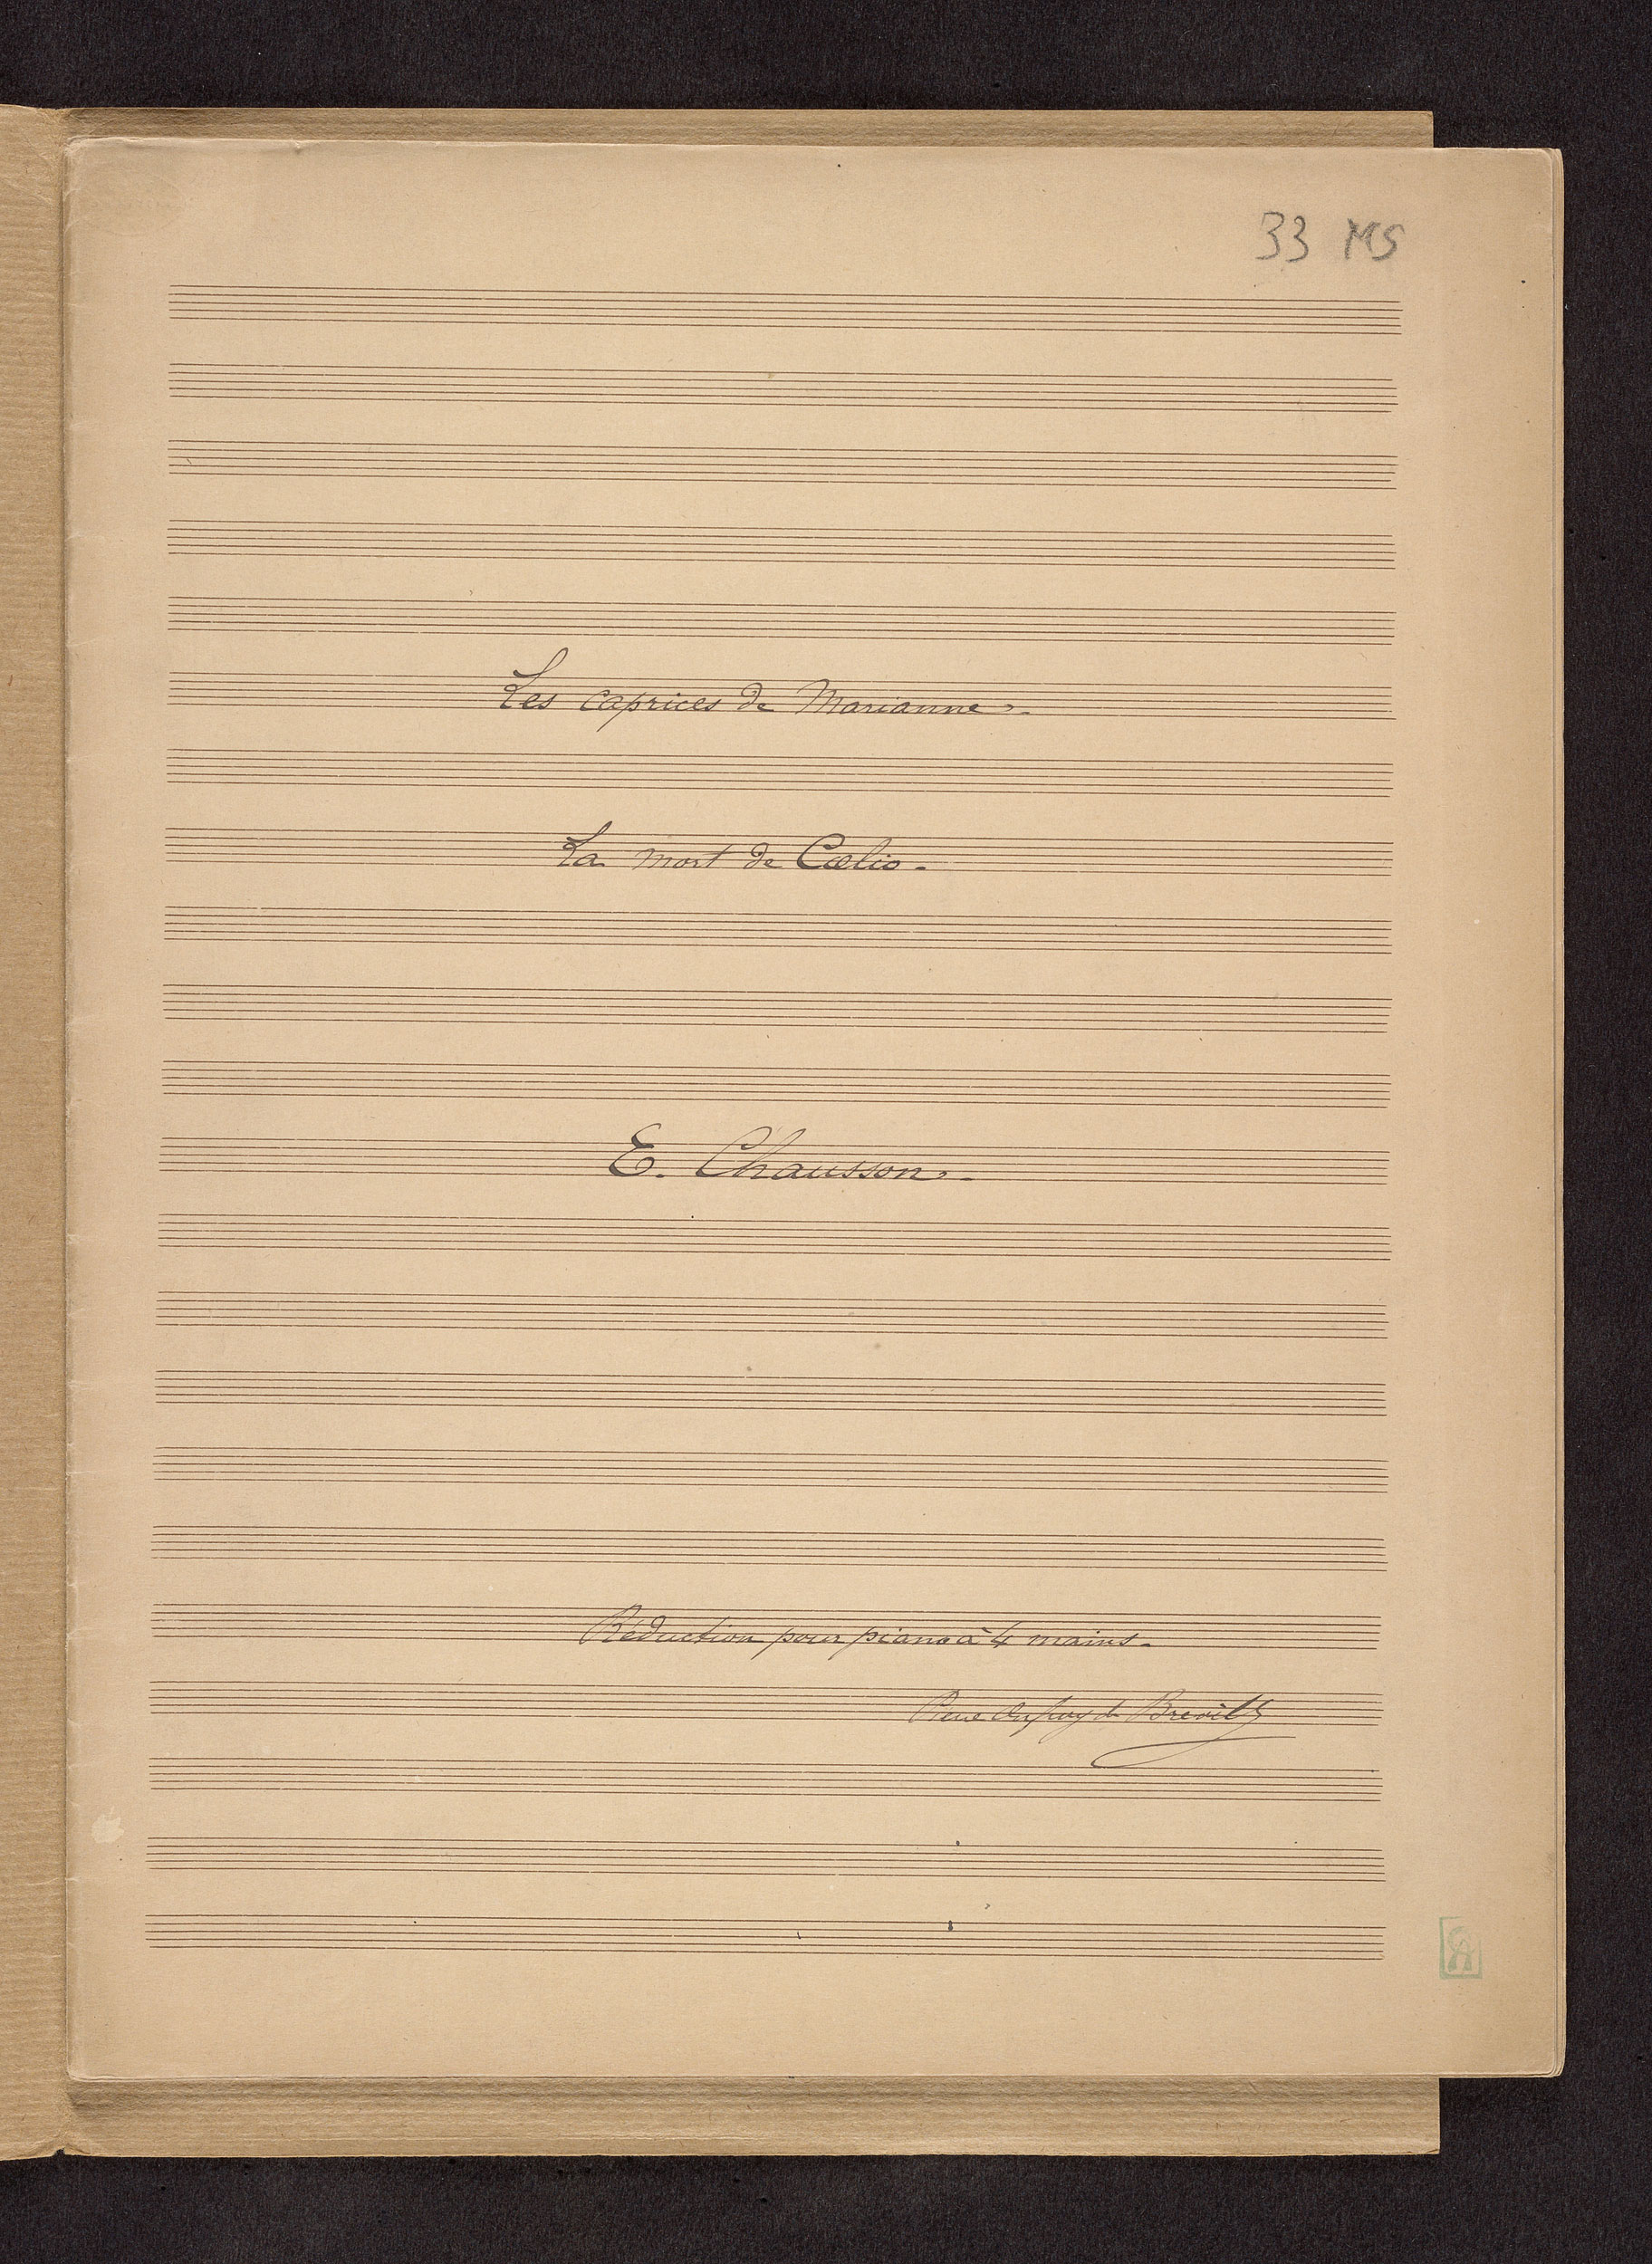 33 MS
Les caprices de Marianne.
La mort de Cœlio.
E. Chausson.
Réduction pour piano à 4 mains.
de Breville